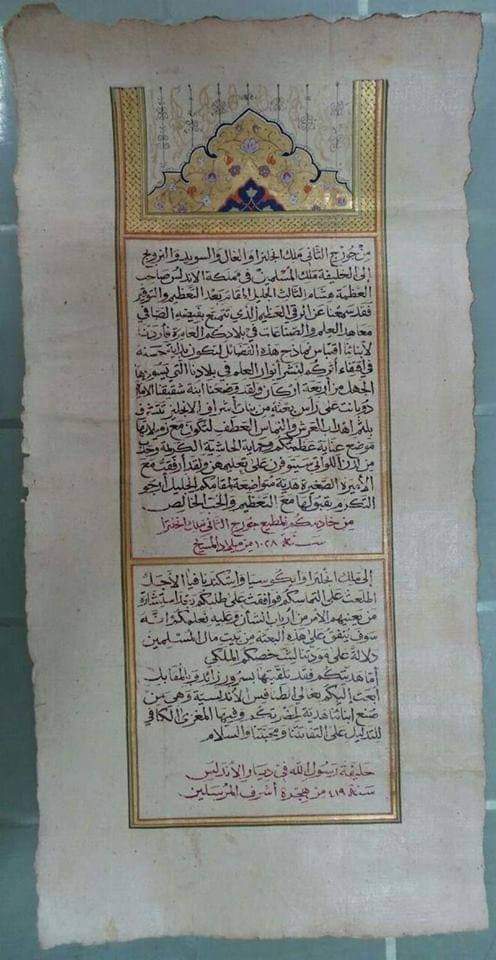 من جورج الثاني ملك انجلترا والغال والسويد والنرويج
إلى الخليفة ملك المسلمين في مملكة الاندلس صاحب
العظمة هشام الثالث الجليل المقام بعد التعظيم والتوقير
فقد سمعنا عن الرقي العظيم الذي تتمتع بفيضه الصافي
معاهد العلم والصناعات في بلادكم العامرة فأردنا
لأبنائنا اقتباس نماذج هذه الفضائل لتكون بداية حسنة
في اقتفاء أثركم لنشر أنوار العلم في بلادنا التي يسودها
الجهل من أربعة أركان ولقد وضعنا ابنة شقيقنا الاميرة
دوبانت على رأس بعثة من بنات أشراف الانجليز تتشرف
بلثم أهداب العرش والتماس العطف لتكون مع زميلاتها
موضع عناية عظمتكم وحماية الحاشية الكريمة وحدب
من لدن اللواتي سيتوفرن على تعليمهن ولقد أرفقت مع
الأميرة الصغيرة هدية متواضعة لمقامكم الجليل أرجو
التكرم بقبولها مع التعظيم والحب الخالص
من خادمكم المطيع جورج الثاني ملك انجلترا
سنة ١٠٢٨ من ميلاد المسيح
إلى ملك انجلترا وايكوسيا واسكندنافيا الأجل
اطلعت على التماسكم فوافقت على طلبكم بعد استشارة
من يعنيهم الأمر من أرباب الشأن وعليه نعلمكم انه
سوف ينفق على هذه البعثة من بيت مال المسلمين
دلالة على مودتنا لشخصكم الملكي
أما هديتكم فقد تلقيتها بسرور زائد وبالمقابل
أبعث إليكم بغالي الطنافس الأندلسية وهي من
صنع أبنائنا هدية لحضرتكم وفيها المغزى الكافي
للتدليل على التفاتتنا ومحبتنا والسلام
خليفة رسول الله في ديار الأندلس
سنة ٤١٩ من هجرة أشرف المرسلين